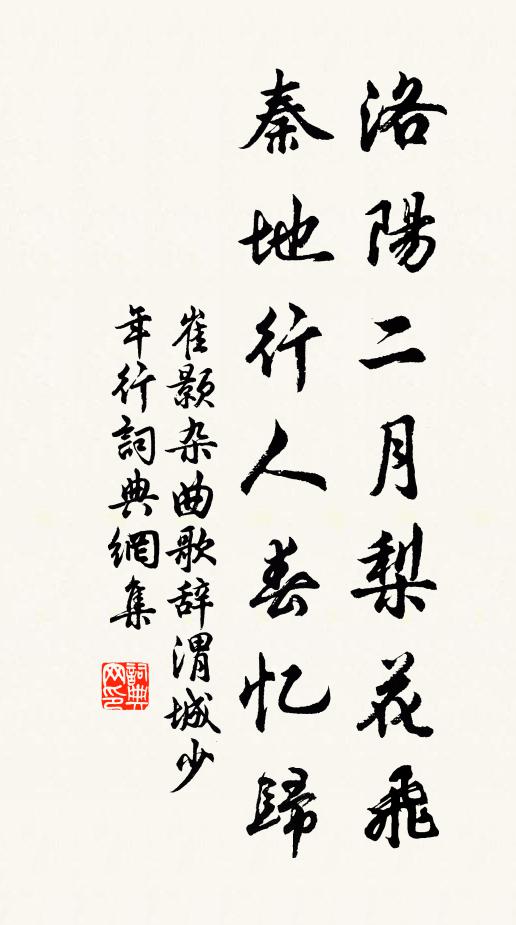 洛陽二月梨花飛
秦地行人春忆歸
崔颢杂曲歌辞渭城少
年行詞典網集
詞典网印